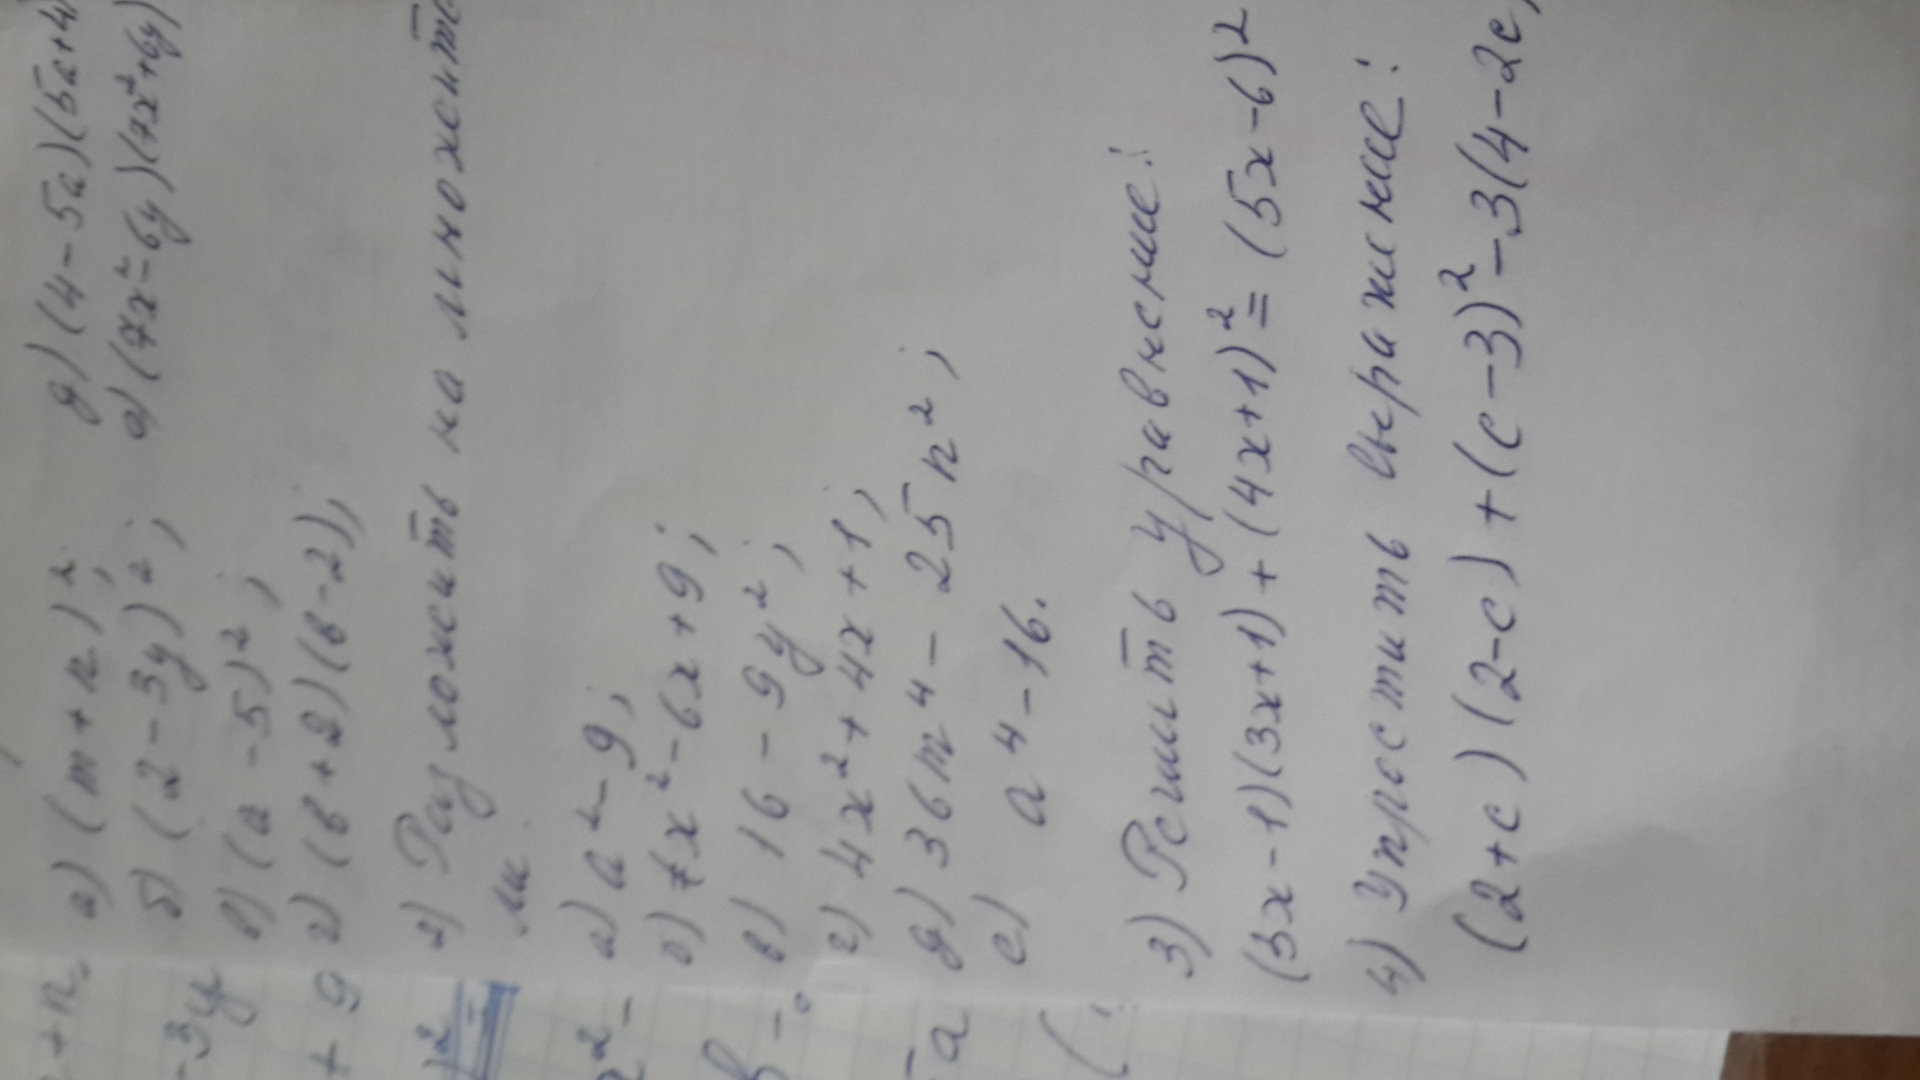 а) (m + n)²;
б) (2 - 3y)²;
в) (a - 5)²;
г) (b + 2)(b - 2);
д) (4 - 5a)(5a + 4)
е) (7x² - 6y)(7x² + 6y)
2) Разложить на множите
ли
а) a² - 9;
б) x² - 6x + 9;
в) 16 - 9y²;
г) 4x² + 4x + 1;
д) 36m⁴ - 25n²;
е) a⁴ - 16.
3) Решить уравнение:
(3x - 1)(3x + 1) + (4x + 1)² = (5x - 6)²
4) Упростить выражение:
(2 + c)(2 - c) + (c - 3)² - 3(4 - 2c)
+ n
- 3y
+ 9